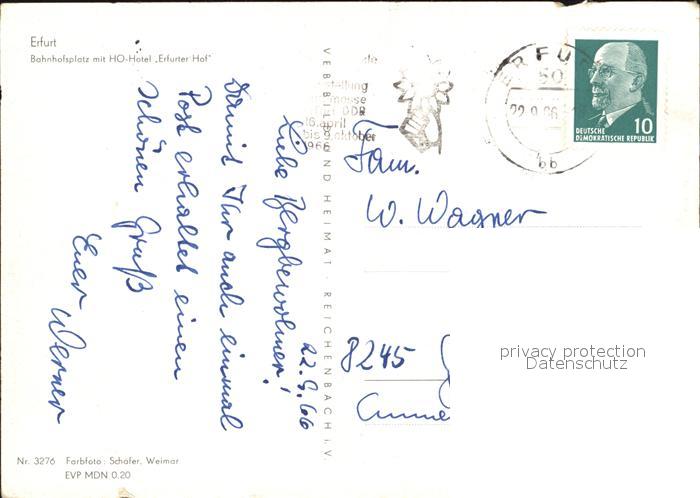 Erfurt
Bahnhofsplatz mit HO-Hotel „Erfurter Hof"
Liebe Bergbewohner!
Damit Ihr auch einmal
Post erhaltet einen
schönen Gruß
Euer Werner
22.9.66
VEB BILD UND HEIMAT · REICHENBACH i. V.
stellung
DDR
16. april
bis 9. oktober
1966
ERFURT
50
22.9.66
bb
DEUTSCHE
DEMOKRATISCHE REPUBLIK
10
Fam.
W. Wagner
8245
privacy protection
Datenschutz
Nr. 3276 Farbfoto: Schäfer, Weimar
EVP MDN 0.20